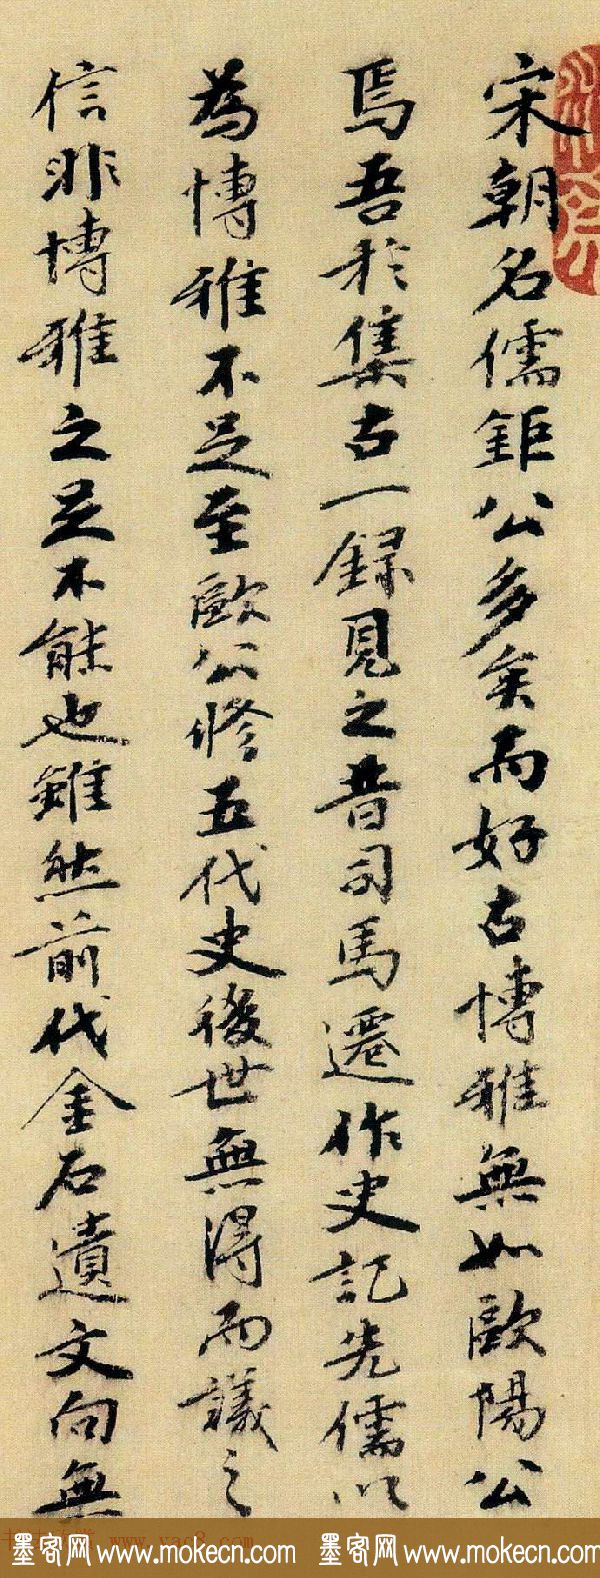 宋朝名儒鉅公多矣而好古博雅無如歐陽公
焉吾於集古一録見之昔司馬遷作史記先儒以
為博雅不足至歐公修五代史後世無得而議之
信非博雅之足不能也雖然前代金石遺文向無
墨客网 www.mokecn.com 墨客网 www.mokecn.com